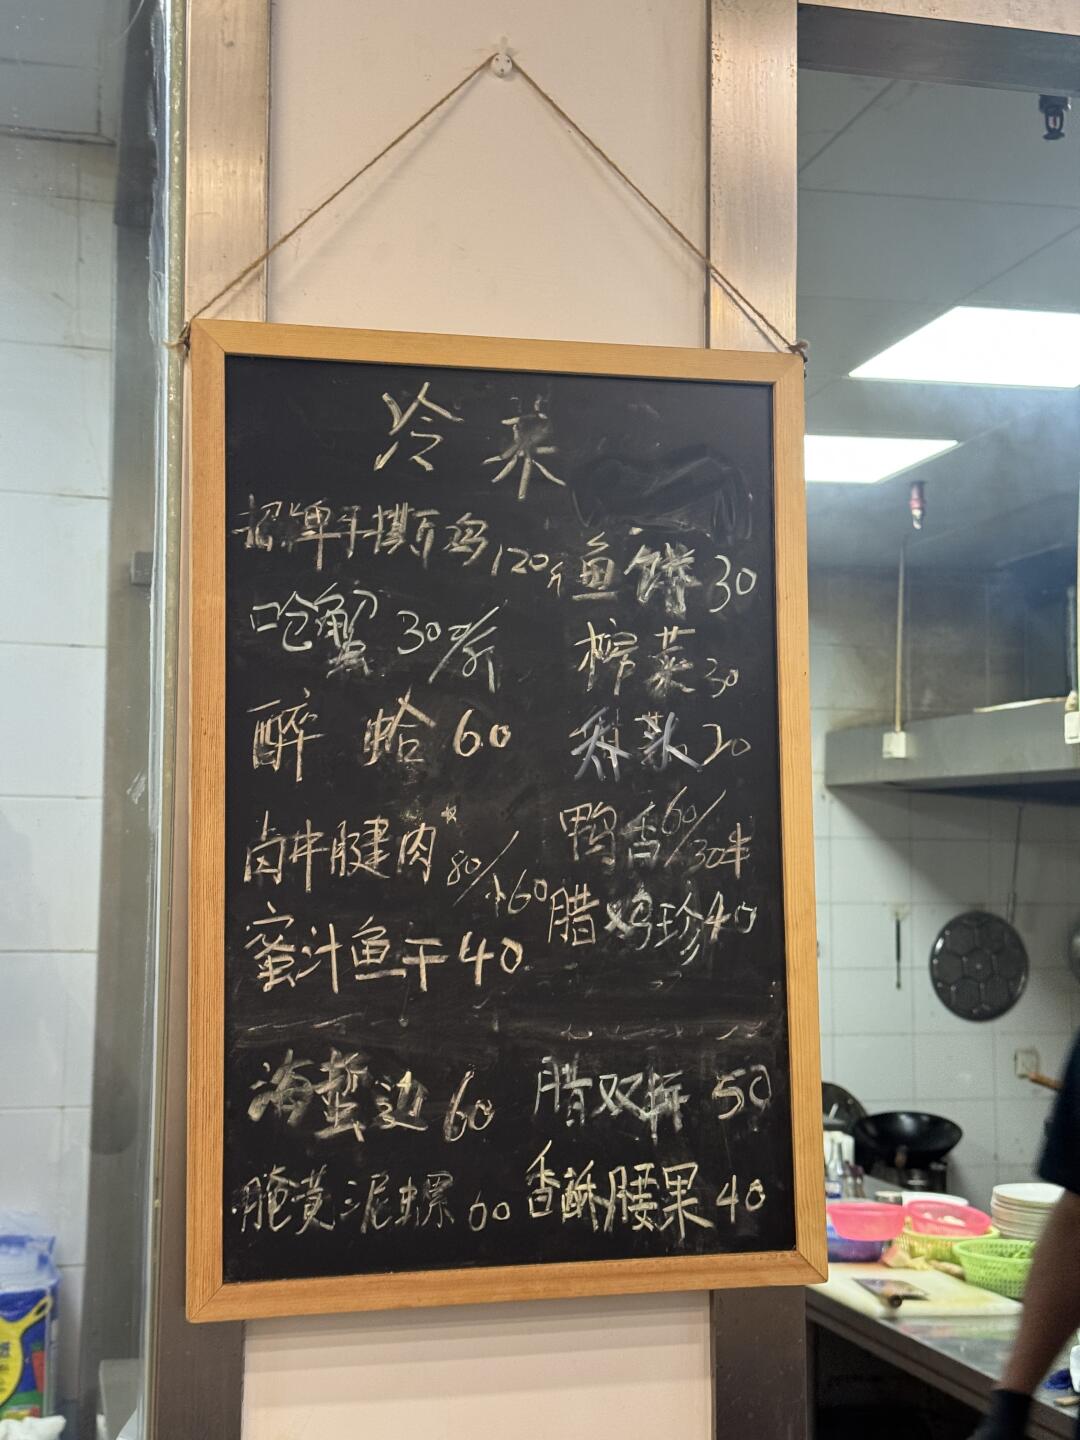 冷菜
招牌手撕百鸡 120斤
呛蟹 30/斤
醉蛤 60
卤牛腱肉 大80/小60
蜜汁鱼干 40
海蜇边 60
腌黄泥螺 60
鱼饼 30
榨菜 30
菜 20
鸭舌 60/30半
腊鸡珍 40
腊双拼 50
香酥腰果 40